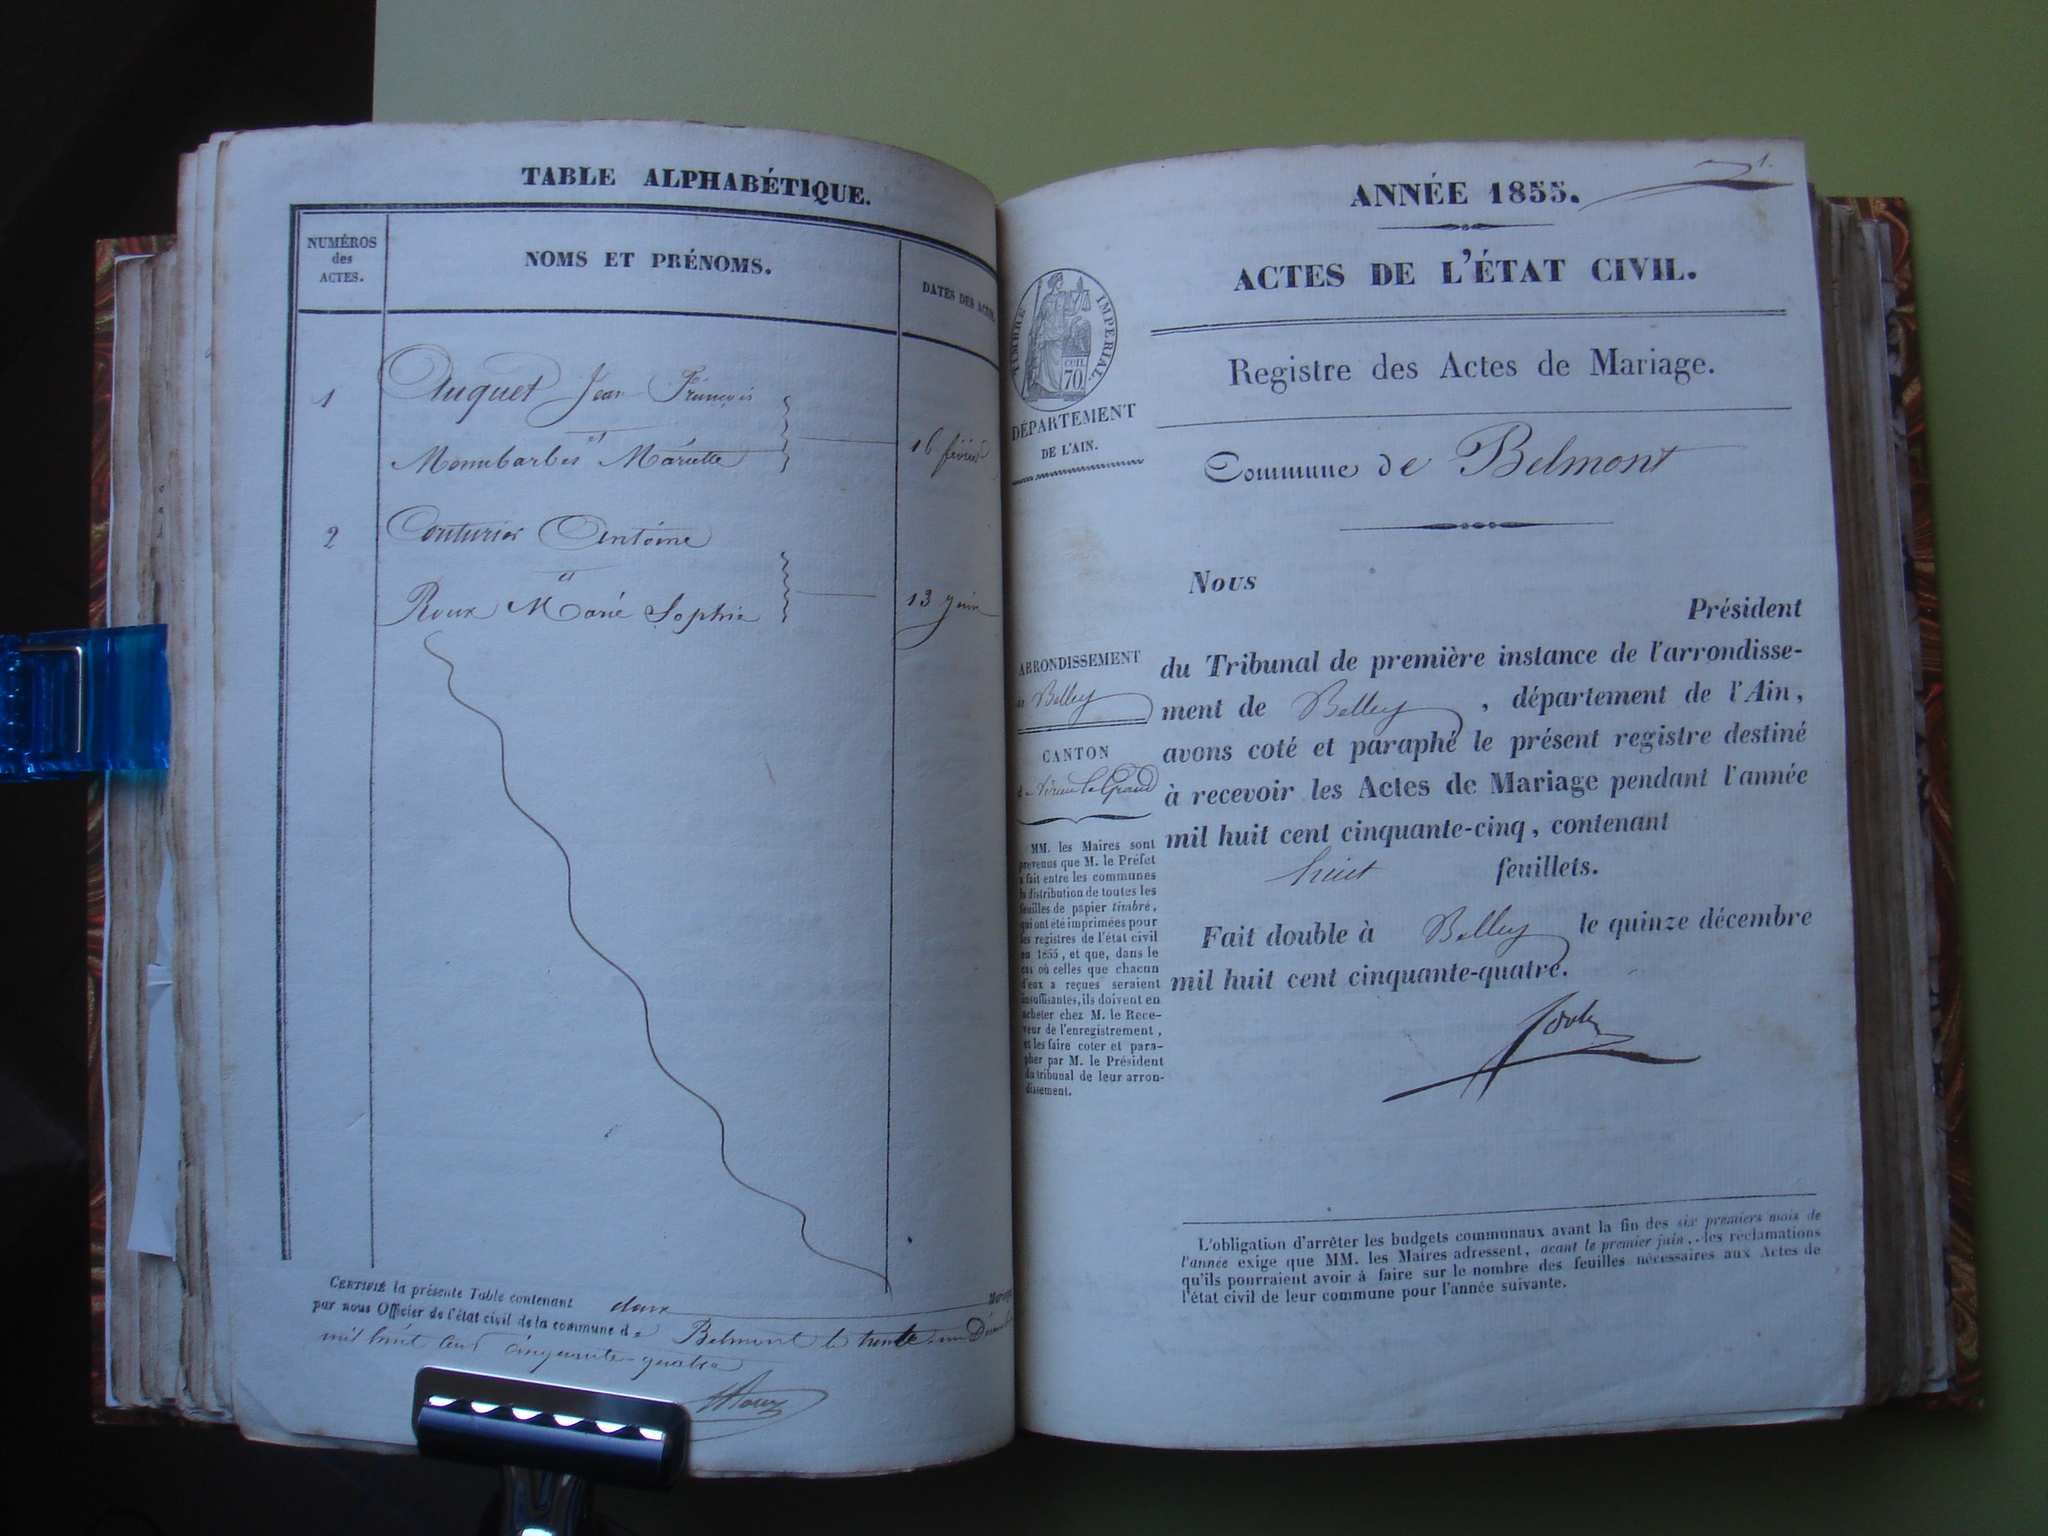 TABLE ALPHABÉTIQUE.
NUMÉROS
des
ACTES.
NOMS ET PRÉNOMS.
DATES DES ACTES
1
Auquet Jean François
et
Mariette
16 février
2
Couturier Antoine
et
Roux Marie Sophie
13 juin
CERTIFIÉ la présente Table contenant deux
par nous Officier de l'état civil de la commune de Belmont le trente-un Décembre
mil huit cent cinquante-quatre
Roux
1.
ANNÉE 1855.
ACTES DE L'ÉTAT CIVIL.
TIMBRE IMPERIAL.
CEN. 70
DÉPARTEMENT
DE L'AIN.
Registre des Actes de Mariage.
Commune de Belmont
Nous
Président
du Tribunal de première instance de l'arrondisse-
ment de Belley, département de l'Ain,
avons coté et paraphé le présent registre destiné
à recevoir les Actes de Mariage pendant l'année
mil huit cent cinquante-cinq, contenant
huit feuillets.
Fait double à Belley le quinze décembre
mil huit cent cinquante-quatre.
ARRONDISSEMENT
de Belley
CANTON
de Virieu le Grand
MM. les Maires sont
prévenus que M. le Préfet
a fait entre les communes
la distribution de toutes les
feuilles de papier timbré,
qui ont été imprimées pour
les registres de l'état civil
en 1855, et que, dans le
cas où celles que chacun
d'eux a reçues seraient
insuffisantes, ils doivent en
acheter chez M. le Rece-
veur de l'enregistrement,
et les faire coter et para-
pher par M. le Président
du tribunal de leur arron-
dissement.
L'obligation d'arrêter les budgets communaux avant la fin des six premiers mois de
l'année exige que MM. les Maires adressent, avant le premier juin, les réclamations
qu'ils pourraient avoir à faire sur le nombre des feuilles nécessaires aux Actes de
l'état civil de leur commune pour l'année suivante.